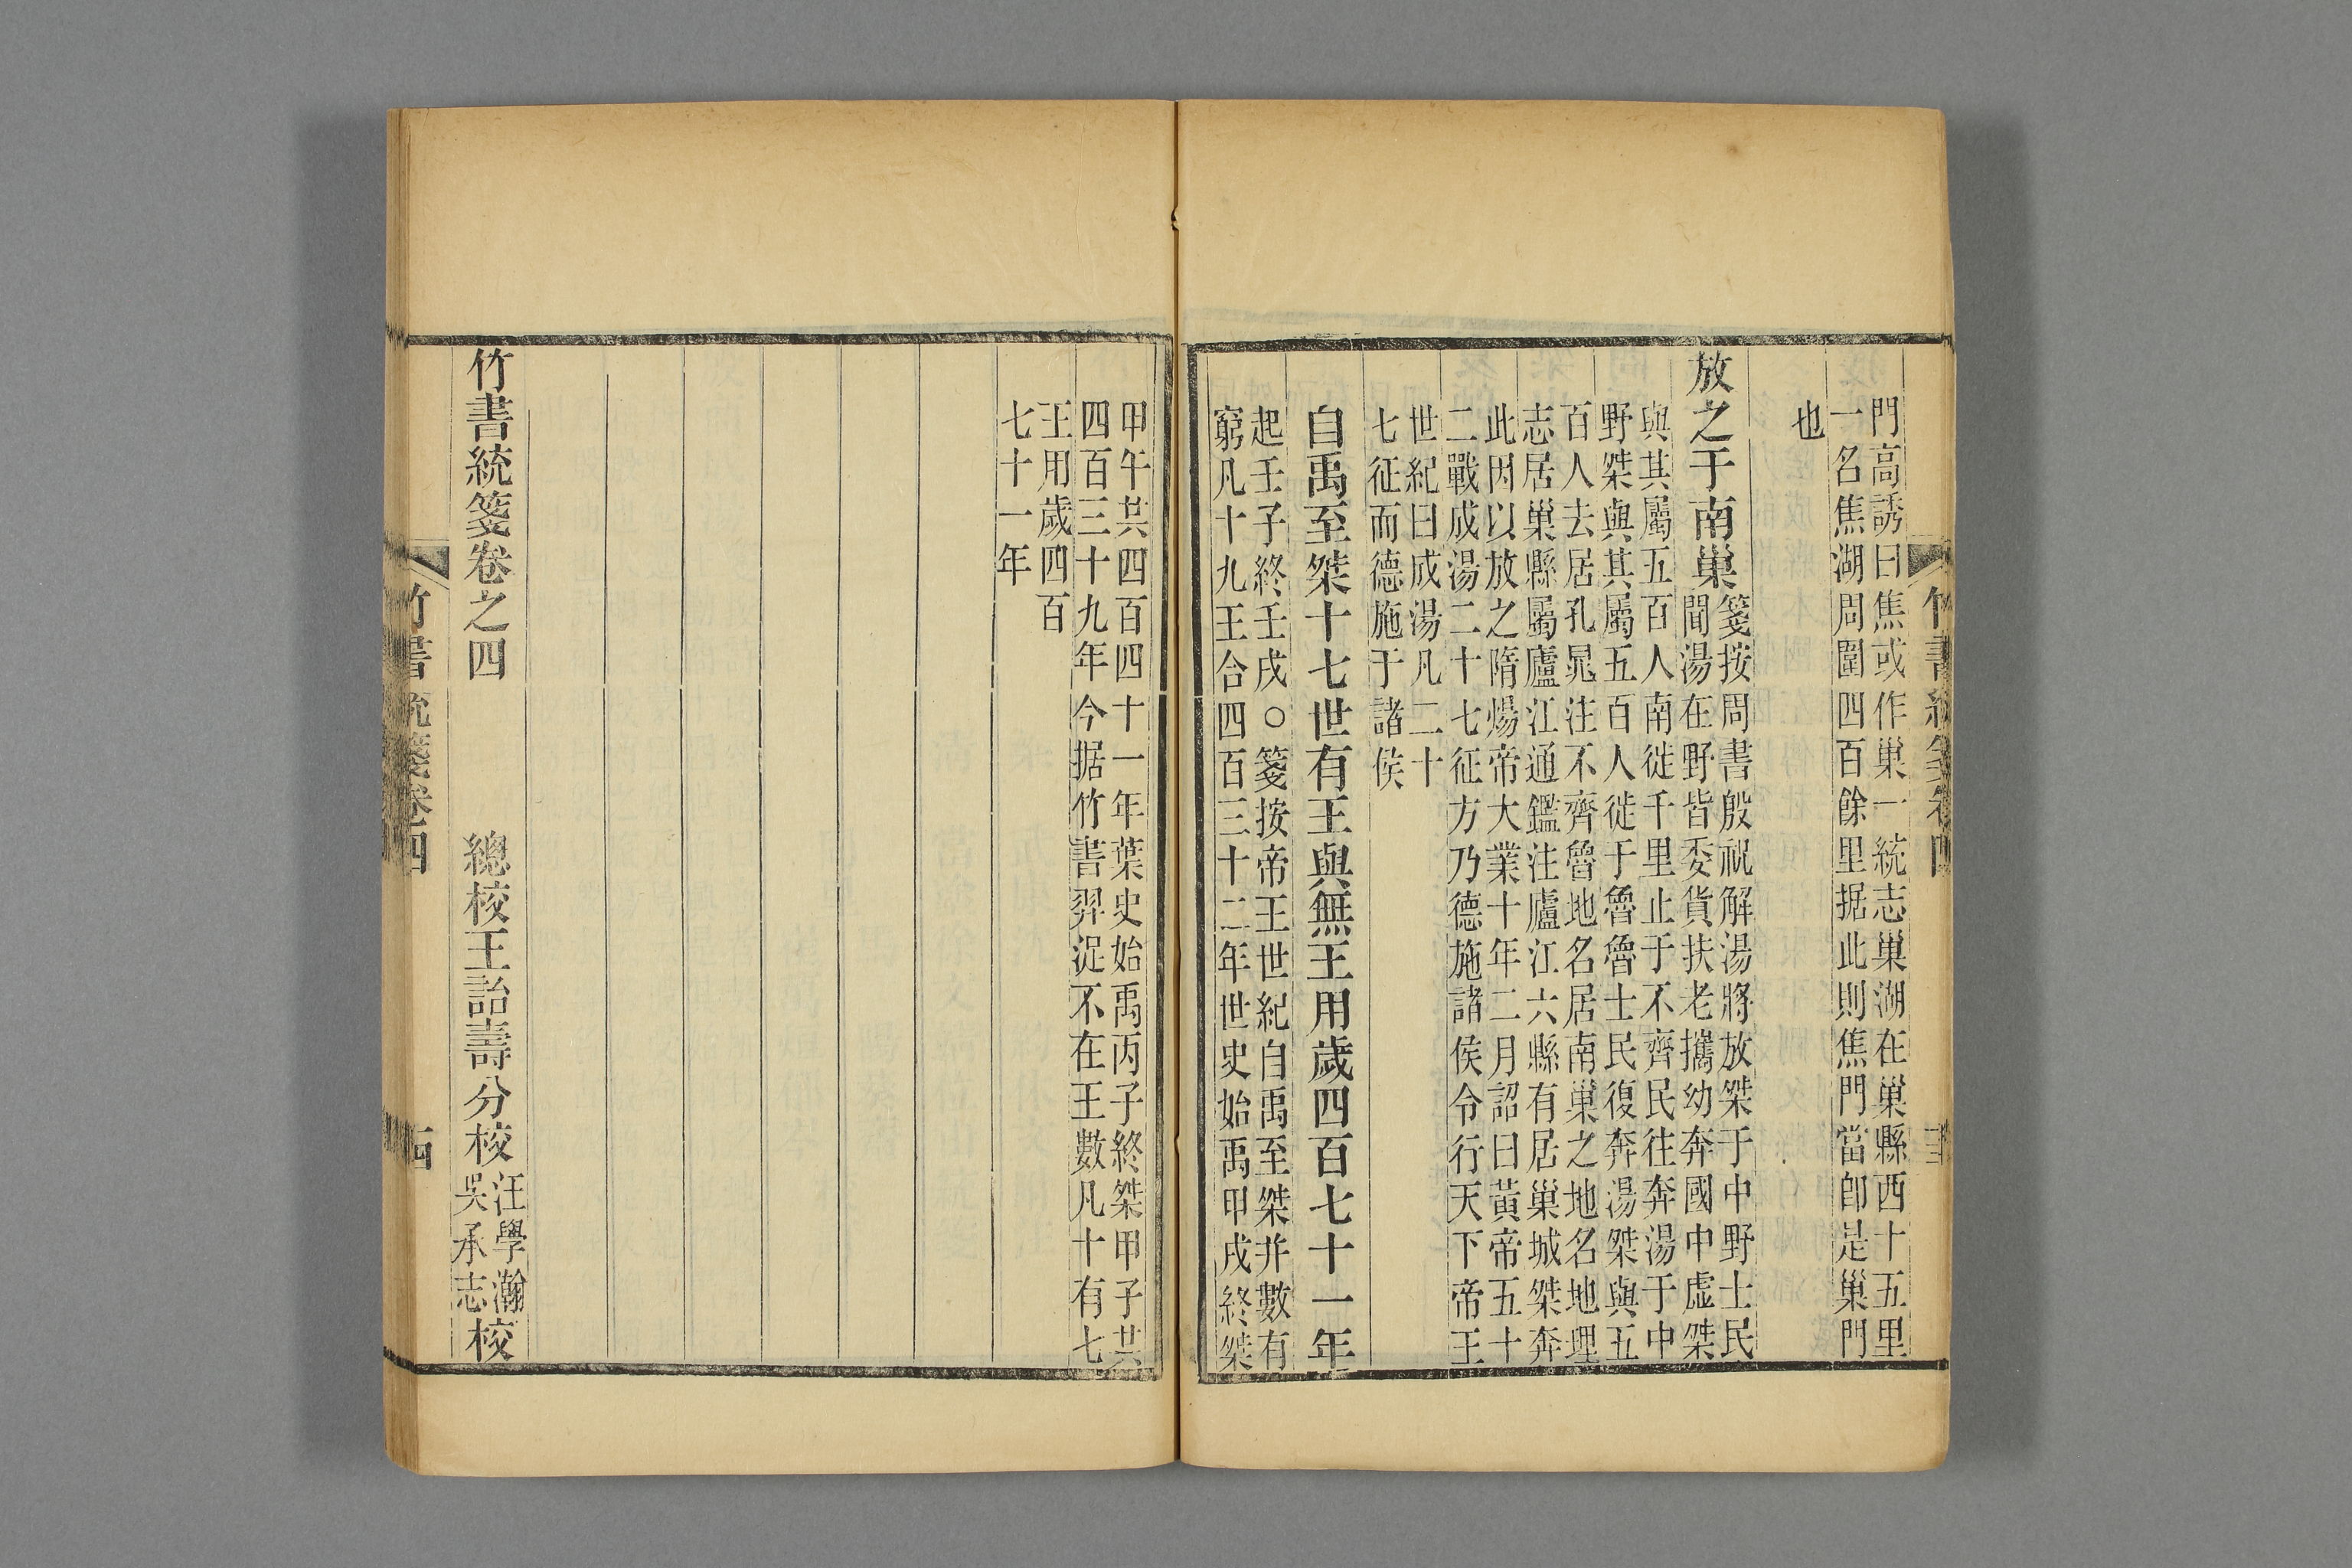 竹書統箋卷四
門高誘曰焦或作巢一統志巢湖在巢縣西十五里
一名焦湖周圍四百餘里据此則焦門當卽是巢門
也
放之于南巢
箋按周書殷祝解湯將放桀于中野士民
聞湯在野皆委貨扶老攜幼奔國中虛桀
與其屬五百人南徙千里止于不齊民往奔湯于中
野桀與其屬五百人徙于魯魯士民復奔湯桀與五
百人去居孔晁注不齊魯地名居南巢之地名地理
志居巢縣屬廬江通鑑注廬江六縣有居巢城桀奔
此因以放之隋煬帝大業十年二月詔曰黃帝五十
二戰成湯二十七征方乃德施諸侯令行天下帝王
世紀曰成湯凡二十
七征而德施于諸侯
自禹至桀十七世有王與無王用歲四百七十一年
起壬子終壬戌○箋按帝王世紀自禹至桀并數有
窮凡十九王合四百三十二年世史始禹甲戌終桀
甲午共四百四十一年葉史始禹丙子終桀甲子共
四百三十九年今据竹書羿浞不在王數凡十有七
王用歲四百
七十一年
竹書統箋卷之四
總校王詒壽分校
汪學瀚
吳承志
校
竹書統箋卷四